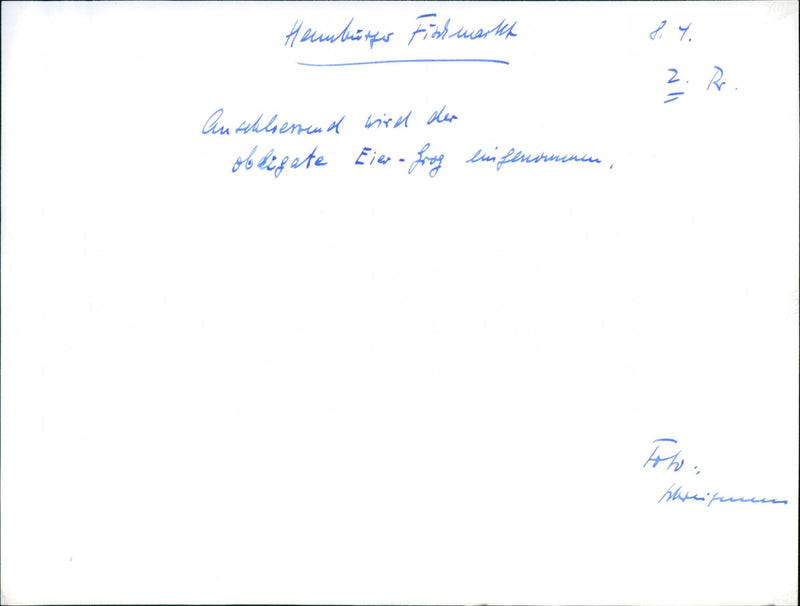 Hamburger Fischmarkt
8. 4.
2. Pr.
Anschliessend wird der
obligate Eier-Grog eingenommen.
Foto: